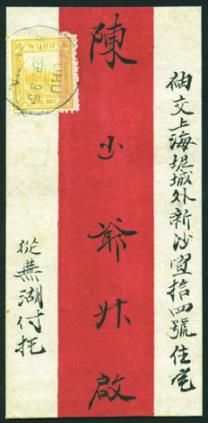 函交上海坭城外新沙宣拾四號住宅
陳少爺升啟
從蕪湖付托